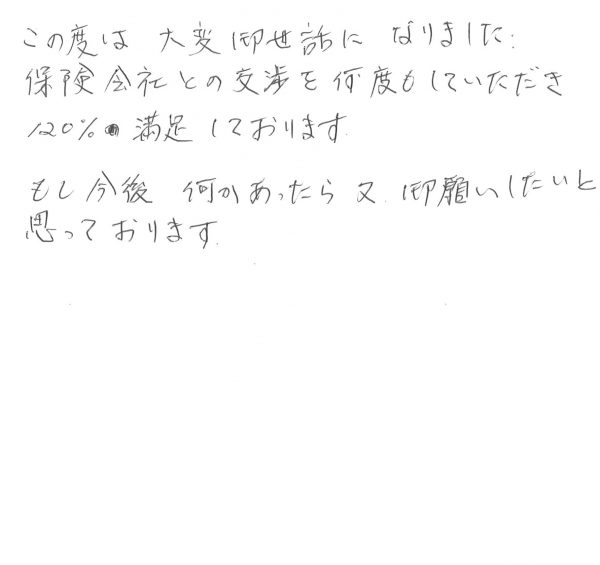 この度は 大変御世話に なりました.
保険会社との交渉を何度もしていただき
120% 満足しております.
もし今後 何かあったら又 御願いしたいと
思っております.